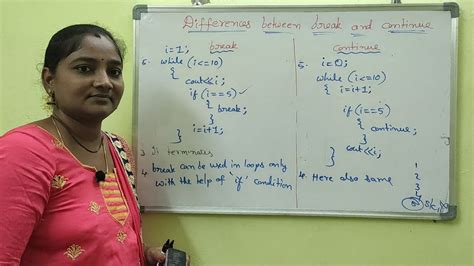 Differences between break and continue
break
i=1;
5. while (i<=10)
{
cout<<i;
if (i==5)
{
break;
}
i=i+1;
}
3. It terminates
4. break can be used in loops only
with the help of 'if' condition
continue
5. i=0;
while (i<=10)
{
i=i+1;
if (i==5)
{
continue;
}
cout<<i;
}
4. Here also same
1
2
3
4
5